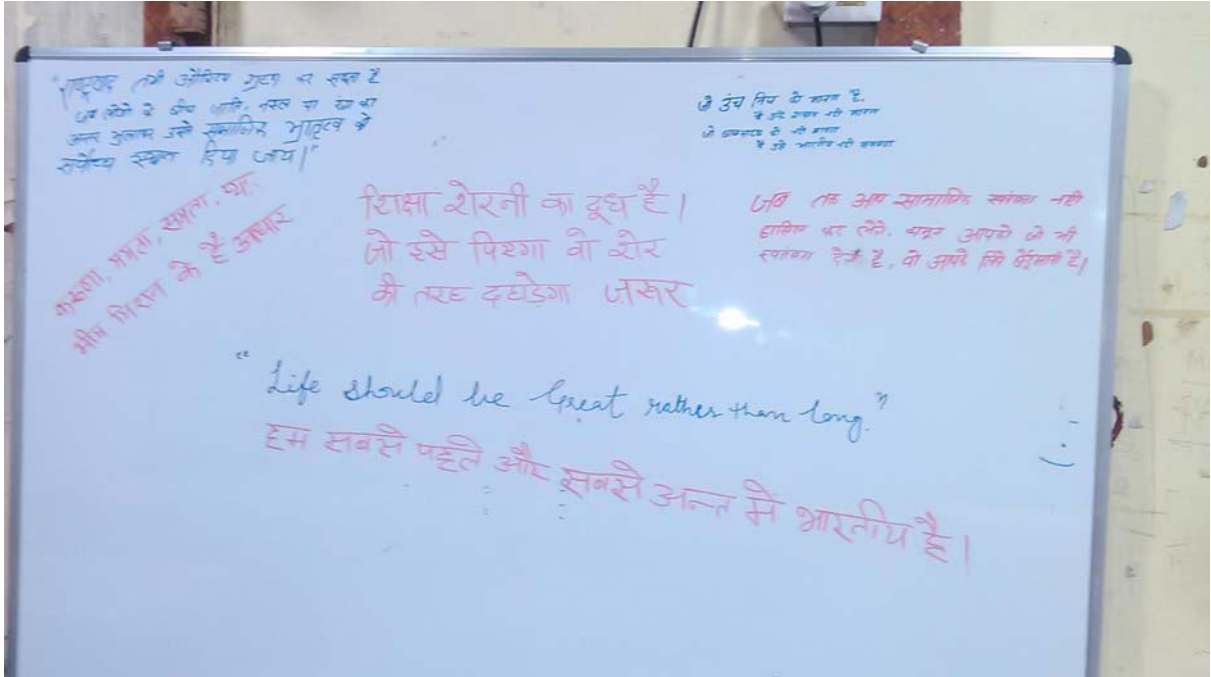 "राष्ट्रवाद तभी औचित्य ग्रहण कर सकता है
जब लोगो के बीच जाति, नस्ल या रंग का
अन्तर भुलाकर उसमे सामाजिक भ्रातृत्व को
सर्वोच्च स्थान दिया जाये।"
जो उंच निच को मानता है,
मै उसे नही मानता
जो को नही मानता
मै उसे भारतीय नही समझता
करूणा, ममता, समता, प्यार
भीम मिशन के है आधार
शिक्षा शेरनी का दूध है।
जो इसे पिएगा वो शेर
की तरह दहाडेगा जरूर
जब तक आप सामाजिक स्वतंत्रता नही
हासिल कर लेते, कानून आपको जो भी
स्वतंत्रता देता है, वो आपके लिये बेईमानी है।
"Life should be Great rather than long."
हम सबसे पहले और सबसे अन्त मे भारतीय है।